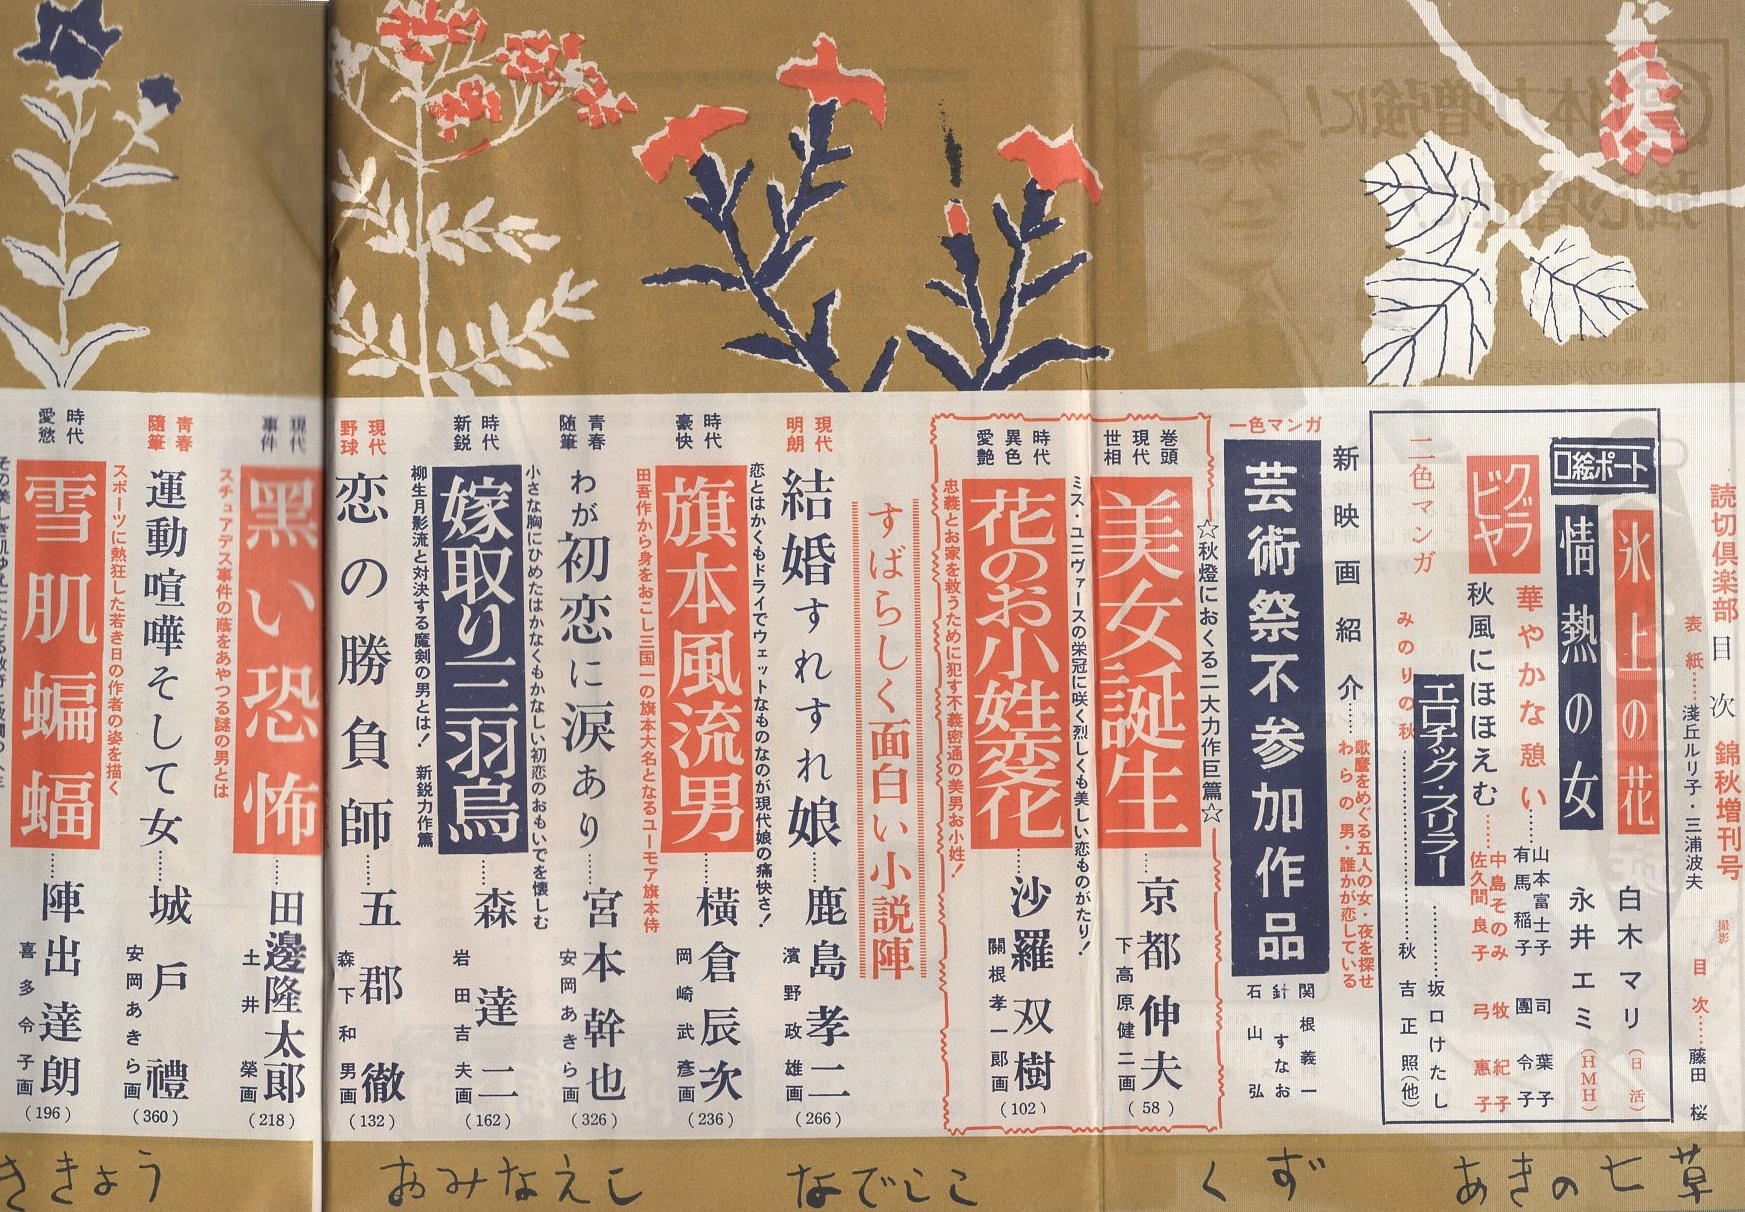 読切倶楽部 目次 錦秋増刊号
表紙……淺丘ルリ子・三浦波夫 撮影
目次……藤田 桜
口絵ポート
氷上の花
白木マリ(日活)
情熱の女
永井エミ(HMH)
グラビヤ
華やかな憩い……山本富士子 司葉子
有馬稲子 團令子
秋風にほほえむ……中島そのみ 牧紀子
佐久間良子 弓恵子
エロチック・スリラー……坂口けたし
二色マンガ
みのりの秋……秋吉正照(他)
新映画紹介……歌麿をめぐる五人の女・夜を探せ
わらの男・誰かが恋している
一色マンガ
芸術祭不参加作品
関根義一
針すなお
石山弘
☆秋燈におくる二大力作巨篇☆
巻頭
現代
世相
美女誕生……京都伸夫
下高原健二画
(58)
ミス・ユニヴァースの栄冠に咲く烈しくも美しい恋ものがたり!
時代
異色
愛艶
花のお小姓変化……沙羅双樹
關根孝一郎画
(102)
忠義とお家を救うために犯す不義密通の美男お小姓!
すばらしく面白い小説陣
現代
明朗
結婚すれすれ娘……鹿島孝二
濱野政雄画
(266)
恋とはかくもドライでウェットなものなのが現代娘の痛快さ!
時代
豪快
旗本風流男……横倉辰次
岡崎武彥画
(236)
田吾作から身をおこし三国一の旗本大名となるユーモア旗本侍
青春
随筆
わが初恋に涙あり……宮本幹也
安岡あきら画
(326)
小さな胸にひめたはかなくもかなしい初恋のおもいでを懐しむ
時代
新鋭
嫁取り三羽烏……森達二
岩田吉夫画
(162)
柳生月影流と対決する魔剣の男とは! 新鋭力作篇
現代
野球
恋の勝負師……五郡徹
森下和男画
(132)
現代
事件
黒い恐怖……田邊隆太郎
土井榮画
(218)
スチュアデス事件の蔭をあやつる謎の男とは
青春
隨筆
運動喧嘩そして女……城戸禮
安岡あきら画
(360)
スポーツに熱狂した若き日の作者の姿を描く
時代
愛慾
雪肌蝙蝠……陣出達朗
喜多令子画
(196)
あきの七草
くず
なでしこ
おみなえし
ききょう